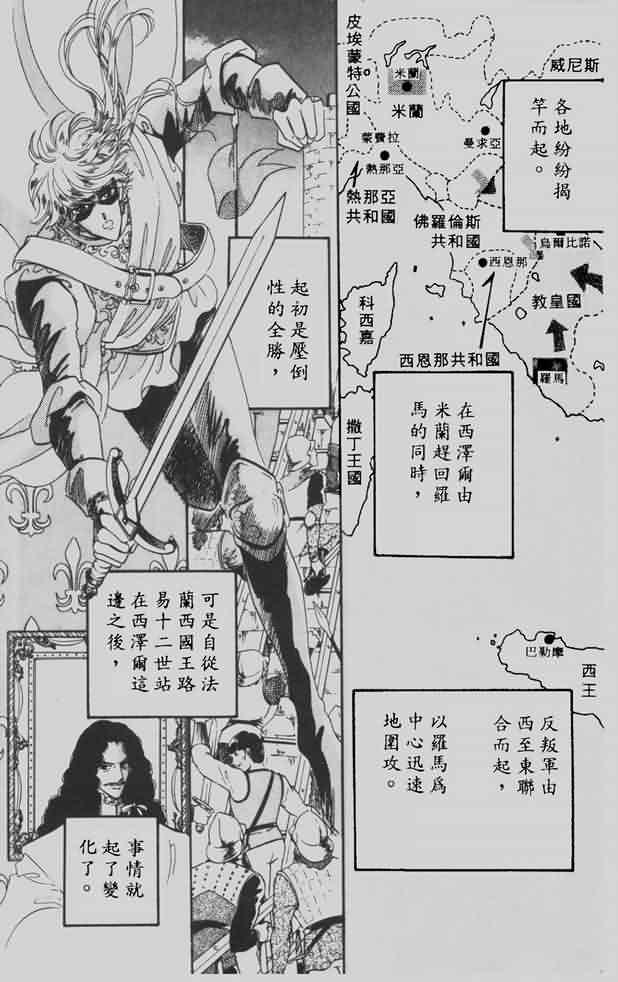 各地紛紛揭
竿而起。
在西澤爾由
米蘭趕回羅
馬的同時，
反叛軍由
西至東聯
合而起，
以羅馬爲
中心迅速
地圍攻。
起初是壓倒
性的全勝，
可是自從法
蘭西國王路
易十二世站
在西澤爾這
邊之後，
事情就
起了變
化了。
皮埃蒙特公國
米蘭
米蘭
威尼斯
蒙費拉
熱那亞
曼求亞
熱那亞
共和國
佛羅倫斯
共和國
烏爾比諾
西恩那
教皇國
科西嘉
西恩那共和國
羅馬
撒丁王國
巴勒摩
西王